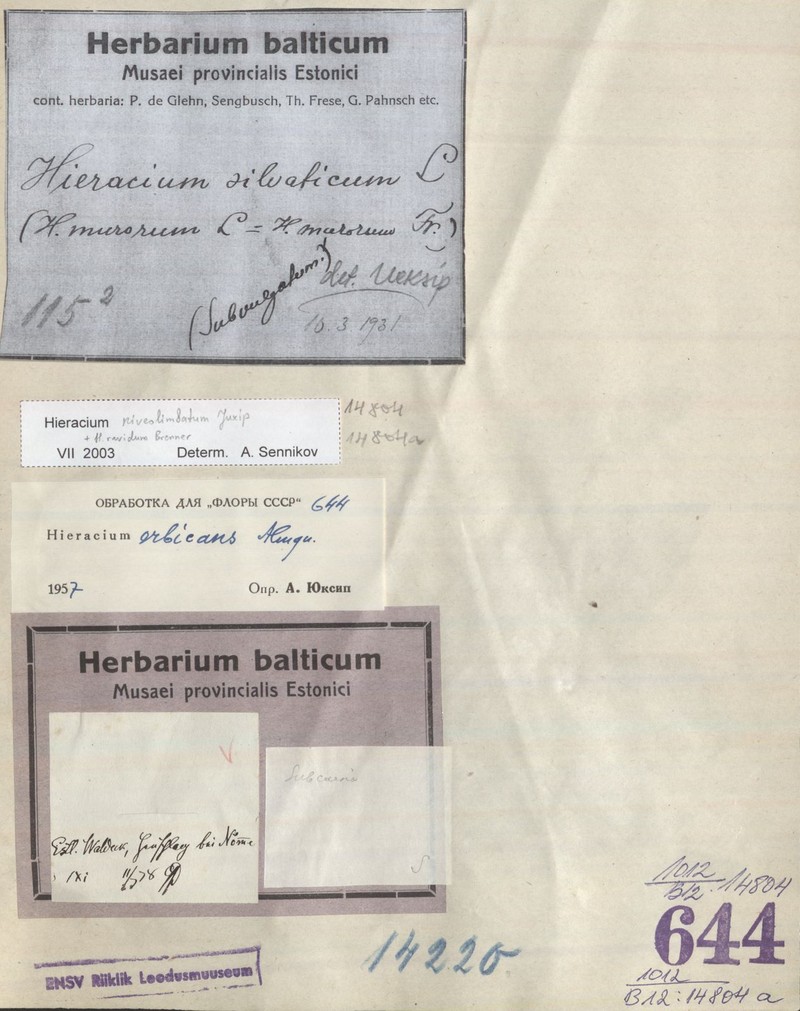 Herbarium balticum
Musaei provincialis Estonici
cont. herbaria: P. de Glehn, Sengbusch, Th. Frese, G. Pahnsch etc.
Hieracium silvaticum L
(H. murorum L = H. murorum Fr.)
(Subvulgatum.)
det. Üksip
115²
10.3 1931
Hieracium niveolimbatum Juxip
+ H. ravidum Brenner
VII 2003 Determ. A. Sennikov
14804
14804a
ОБРАБОТКА ДЛЯ „ФЛОРЫ СССР“ 644
Hieracium orbicans Almqu.
1957 Опр. А. Юксип
Herbarium balticum
Musaei provincialis Estonici
V
Estl. Waldeck, Heuschlag bei Nömme
11/6 78
S
1012
B12:14804
644
1012
B12:14804 a
14220
ENSV Riiklik Loodusmuuseum